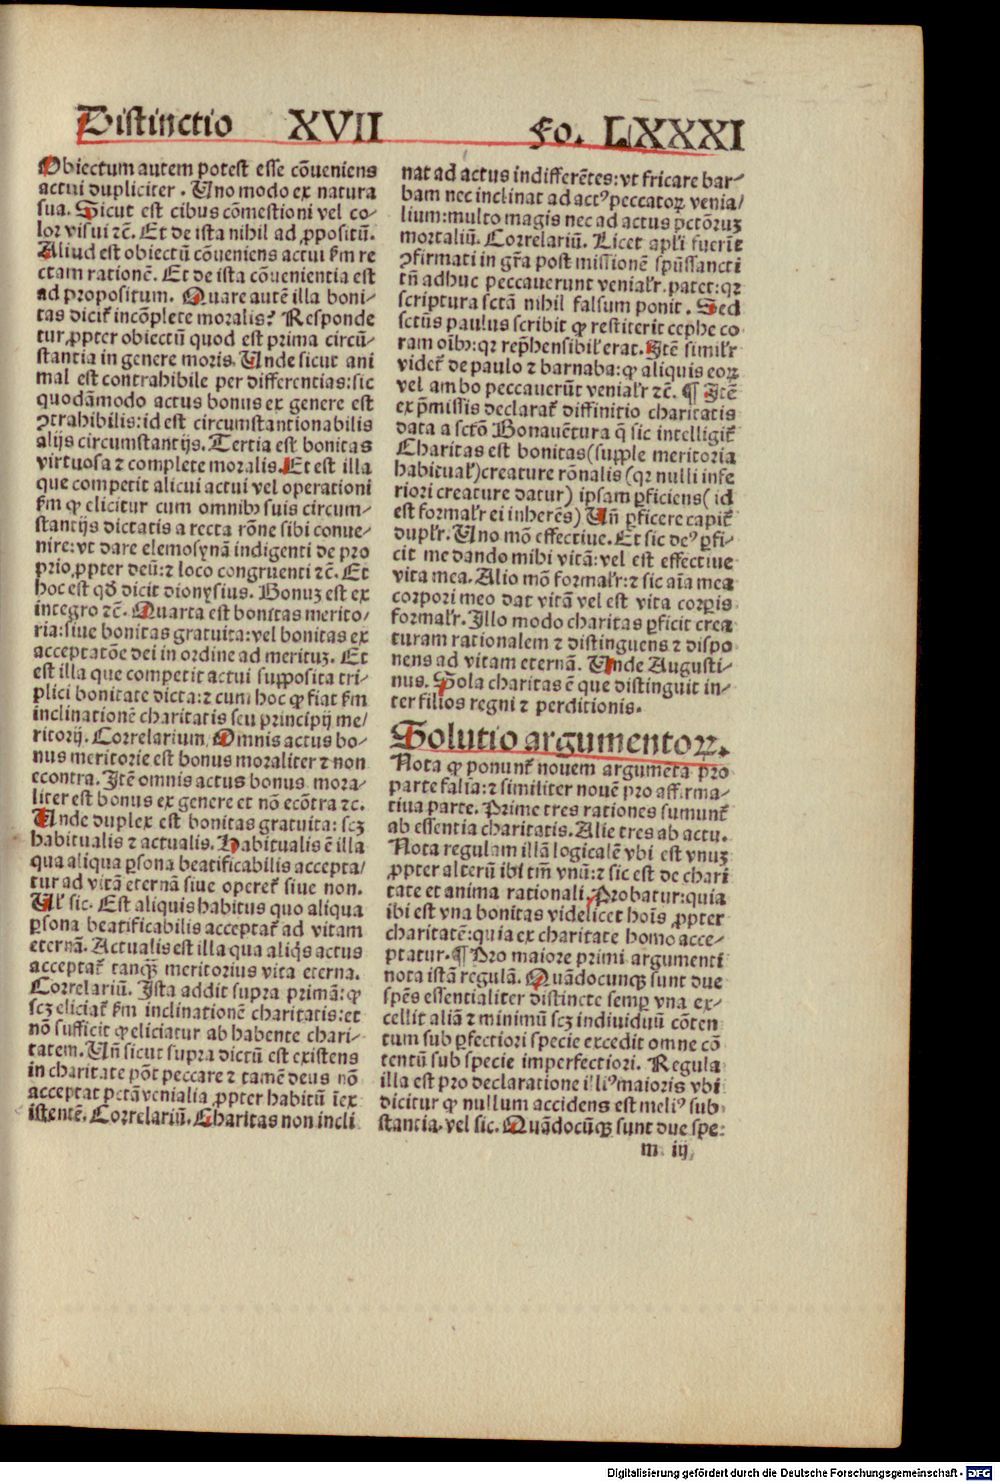 Distinctio XVII Fo. LXXXI
Obiectum autem potest esse cõueniens
actui dupliciter. Uno modo ex natura
sua. Sicut est cibus cõmestioni vel co-
lor visui ⁊c̃. Et de ista nihil ad ꝓpositũ.
Aliud est obiectũ cõueniens actui ẜm re
ctam rationẽ. Et de ista cõuenientia est
ad propositum. Quare autẽ illa boni-
tas dicit᷑ incõplete moralis? Responde
tur ꝓpter obiectũ quod est prima circũ-
stantia in genere moris. Unde sicut ani
mal est contrahibile per differentias: sic
quodãmodo actus bonus ex genere est
ꝯtrahibilis: id est circumstantionabilis
alijs circumstantijs. Tertia est bonitas
virtuosa ⁊ complete moralis. Et est illa
que competit alicui actui vel operationi
ẜm ꝙ elicitur cum omnibꝰ suis circum-
stantijs dictatis a recta rõne sibi conue-
nire: vt dare elemosynã indigenti de pro
prio ꝓpter deũ: ⁊ loco congruenti ⁊c̃. Et
hoc est qđ dicit dionysius. Bonuʒ est ex
integro ⁊c̃. Quarta est bonitas merito/
ria: siue bonitas gratuita: vel bonitas ex
acceptatõe dei in ordine ad merituʒ. Et
est illa que competit actui supposita tri-
plici bonitate dicta: ⁊ cum hoc ꝙ fiat ẜm
inclinationẽ charitatis seu principij me/
ritorij. Correlarium. Omnis actus bo-
nus meritorie est bonus moraliter ⁊ non
econtra. Itẽ omnis actus bonus mora-
liter est bonus ex genere et nõ ecõtra ⁊c.
Unde duplex est bonitas gratuita: scʒ
habitualis ⁊ actualis. Habitualis ẽ illa
qua aliqua ꝑsona beatificabilis accepta/
tur ad vitã eternã siue operet᷑ siue non.
Ul̃ sic. Est aliquis habitus quo aliqua
ꝑsona beatificabilis acceptat᷑ ad vitam
eternã. Actualis est illa qua aliq̃s actus
acceptat᷑ tanqꝫ meritorius vita eterna.
Correlariũ. Ista addit supra primã: ꝙ
scʒ eliciat᷑ ẜm inclinationẽ charitatis: et
nõ sufficit ꝙ eliciatur ab habente chari-
tatem. Uñ sicut supra dictũ est existens
in charitate põt peccare ⁊ tamẽ deus nõ
acceptat pctã venialia ꝓpter habitũ iex
istentẽ. Correlariũ. Charitas non incli
nat ad actus indifferẽtes: vt fricare bar-
bam nec inclinat ad actꝰ peccatoꝝ venia/
lium: multo magis nec ad actus pctõruʒ
mortaliũ. Correlariũ. Licet apl̃i fuerĩt
ꝯfirmati in gr̃a post missionẽ spũssancti
tñ adhuc peccauerunt venial̃r. patet: qꝛ
scriptura sctã nihil falsum ponit. Sed
sctũs paulus scribit ꝙ restiterit cephe co
ram oĩbꝰ: qꝛ rep̃hensibil̃ erat. Itẽ simil̃r
videt᷑ de paulo ⁊ barnaba: ꝙ aliquis eoꝝ
vel ambo peccauerũt venial̃r ⁊c̃. ¶ Itẽ
ex p̃missis declarat᷑ diffinitio charitatis
data a sctõ Bonauẽtura q̃ sic intelligit᷑
Charitas est bonitas (supple meritoria
habitual̃) creature rõnalis (qꝛ nulli infe
riori creature datur) ipsam ꝑficiens (id
est formal̃r ei inherẽs) Uñ ꝑficere capit᷑
dupl̃r. Uno mõ effectiue. Et sic deꝰ ꝑfi-
cit me dando mihi vitã: vel est effectiue
vita mea. Alio mõ formal̃r: ⁊ sic aĩa mea
corpori meo dat vitã vel est vita corꝑis
formal̃r. Illo modo charitas ꝑficit crea
turam rationalem ⁊ distinguens ⁊ dispo
nens ad vitam eternã. Unde Augusti-
nus. Sola charitas ẽ que distinguit in-
ter filios regni ⁊ perditionis.
Solutio argumentoꝝ.
Nota ꝙ ponunt᷑ nouem argumẽta pro
parte falsa: ⁊ similiter nouẽ pro affirma-
tiua parte. Prime tres rationes sumunt᷑
ab essentia charitatis. Alie tres ab actu.
Nota regulam illã logicalẽ vbi est vnuʒ
ꝓpter alterũ ibi tm̃ vnũ: ⁊ sic est de chari
tate et anima rationali. Probatur: quia
ibi est vna bonitas videlicet hoĩs ꝓpter
charitatẽ: quia ex charitate homo acce-
ptatur. ¶ Pro maiore primi argumenti
nota istã regulã. Quãdocunqꝫ sunt due
spẽs essentialiter distincte semꝑ vna ex-
cellit aliã ⁊ minimũ scʒ indiuiduũ cõten
tum sub ꝑfectiori specie excedit omne cõ
tentũ sub specie imperfectiori. Regula
illa est pro declaratione illiꝰ maioris vbi
dicitur ꝙ nullum accidens est meliꝰ sub-
stantia. vel sic. Quãdocũqꝫ sunt due spe:
m iij
Digitalisierung gefördert durch die Deutsche Forschungsgemeinschaft - DFG